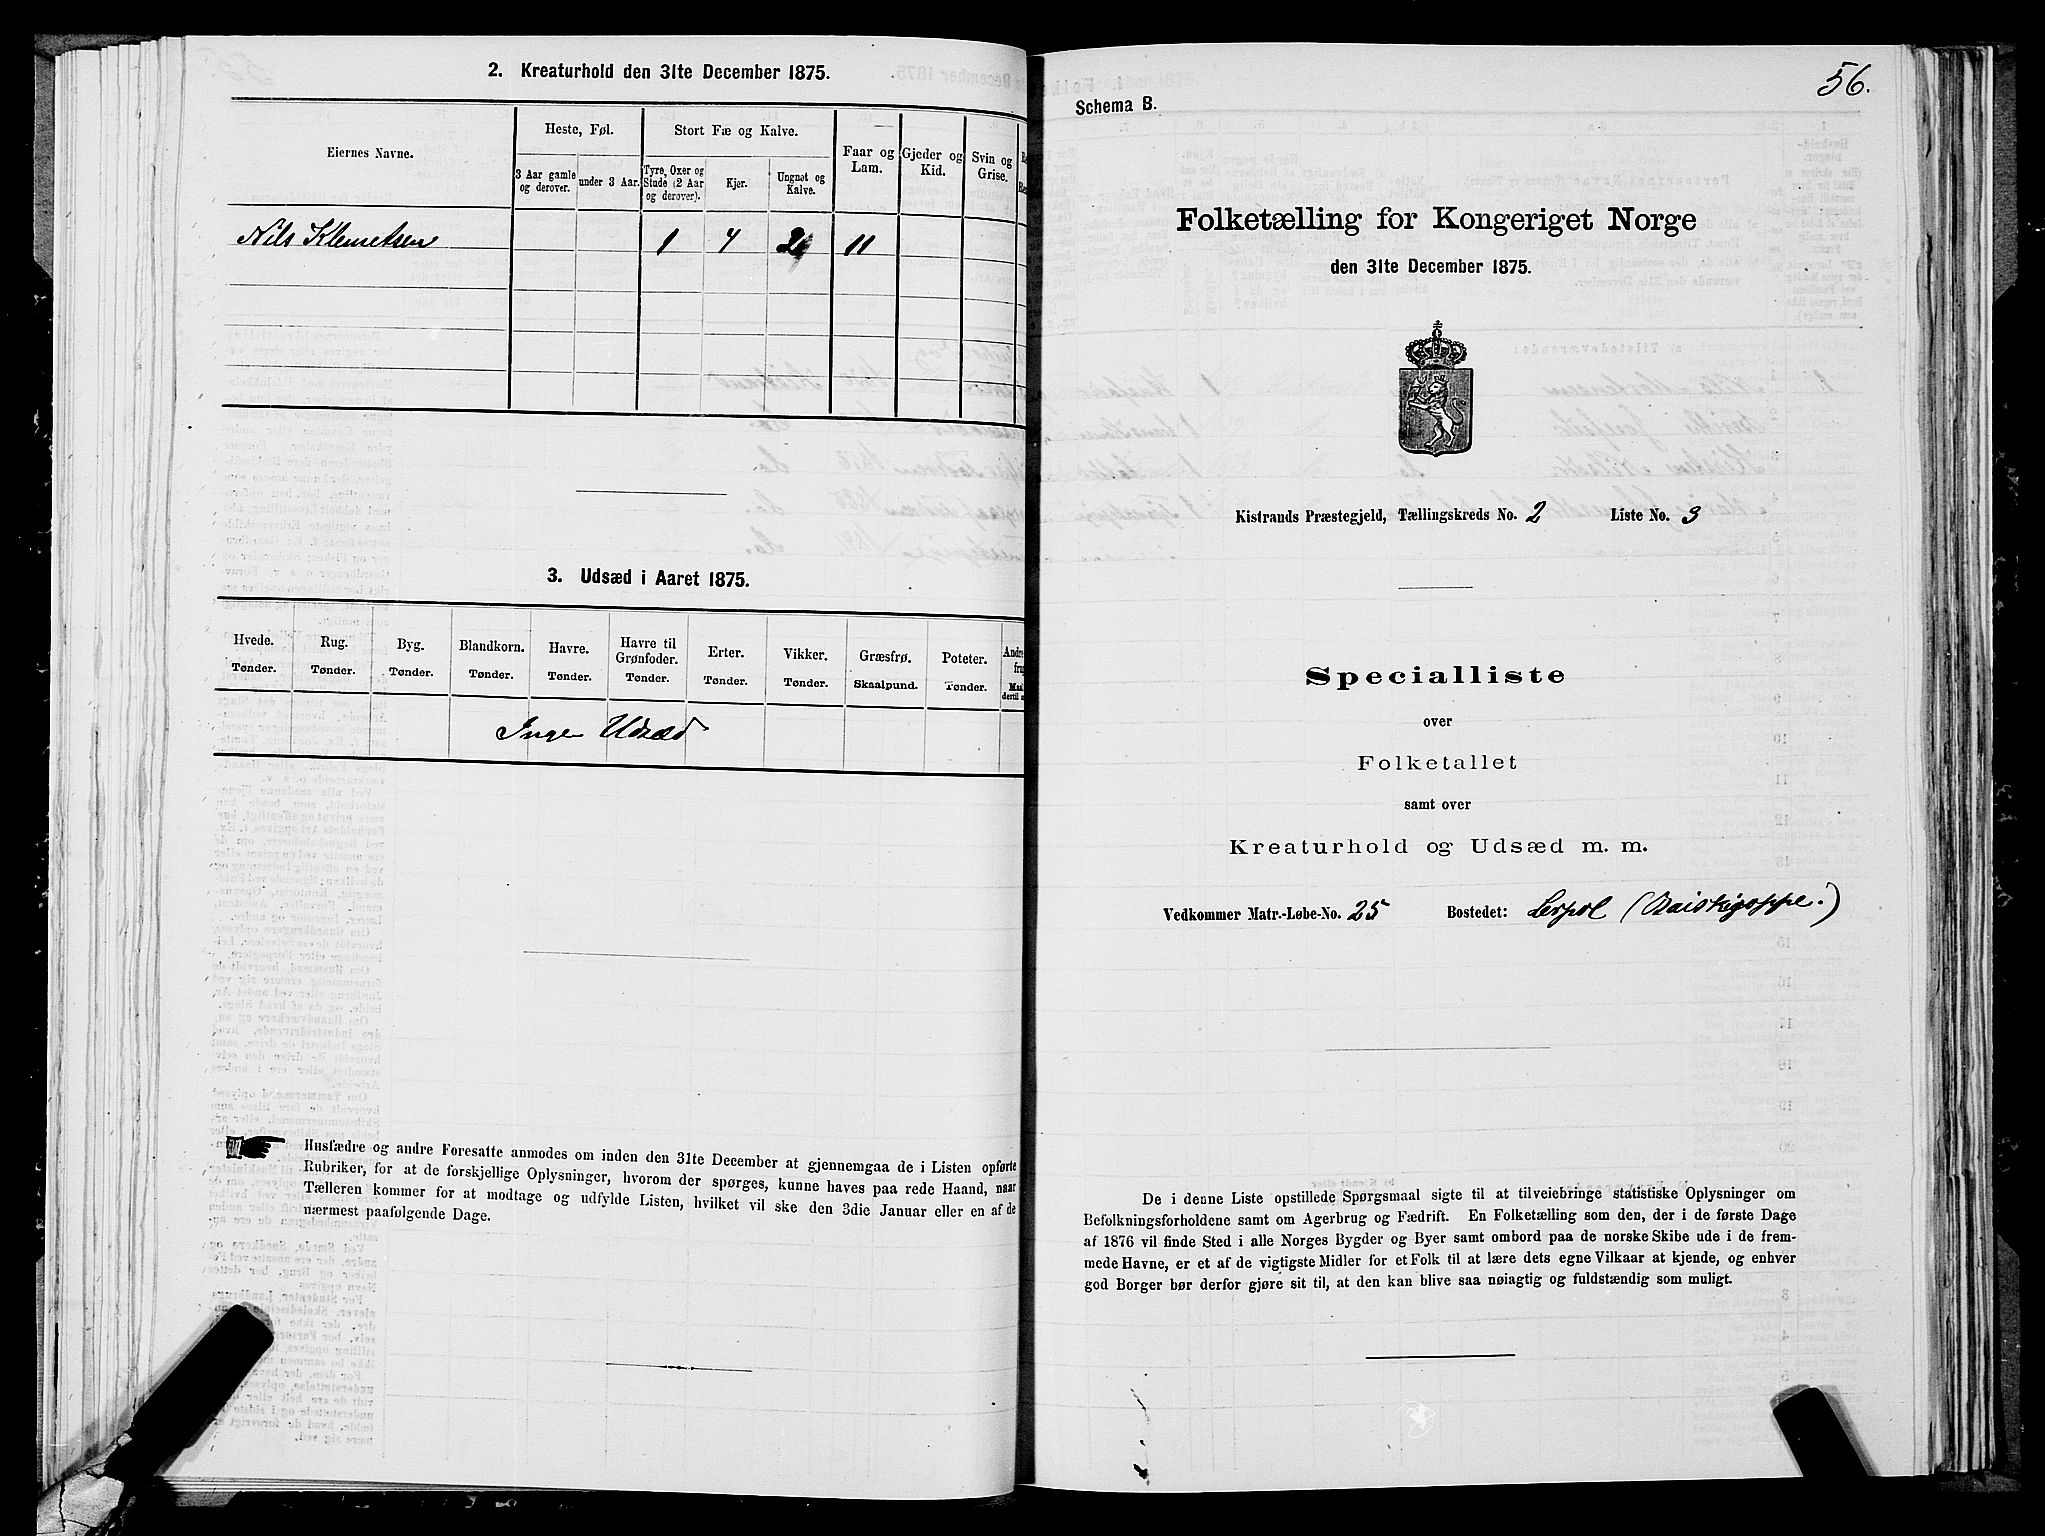 2. Kreaturhold den 31te December 1875.
Eiernes Navne.
Heste, Føl.
Stort Fæ og Kalve.
Faar og Lam.
Gjeder og Kid.
Svin og Grise.
3 Aar gamle og derover.
under 3 Aar.
Tyre, Oxer og Stude (2 Aar og derover).
Kjer.
Ungnøt og Kalve.
Nils Klemetsen 1 4 2 11
3. Udsæd i Aaret 1875.
Hvede. Rug. Byg. Blandkorn. Havre. Havre til Grønfoder. Erter. Vikker. Græsfrø. Poteter.
Tønder. Tønder. Tønder. Tønder. Tønder. Tønder. Tønder. Tønder. Skaalpund. Tønder.
Inge Udsæd
Husfædre og andre Foresatte anmodes om inden den 31te December at gjennemgaa de i Listen opførte
Rubriker, for at de forskjellige Oplysninger, hvorom der spørges, kunne haves paa rede Haand, naar
Tælleren kommer for at modtage og udfylde Listen, hvilket vil ske den 3die Januar eller en af de
nærmest paafølgende Dage.
56.
Schema B.
Folketælling for Kongeriget Norge
den 31te December 1875.
Kistrands Præstegjeld, Tællingskreds No. 2 Liste No. 3
Specialliste
over
Folketallet
samt over
Kreaturhold og Udsæd m. m.
Vedkommer Matr.-Løbe-No. 25 Bostedet: Lerpol
De i denne Liste opstillede Spørgsmaal sigte til at tilveiebringe statistiske Oplysninger om
Befolkningsforholdene samt om Agerbrug og Fædrift. En Folketælling som den, der i de første Dage
af 1876 vil finde Sted i alle Norges Bygder og Byer samt ombord paa de norske Skibe ude i de frem-
mede Havne, er et af de vigtigste Midler for et Folk til at lære dets egne Vilkaar at kjende, og enhver
god Borger bør derfor gjøre sit til, at den kan blive saa nøiagtig og fuldstændig som muligt.